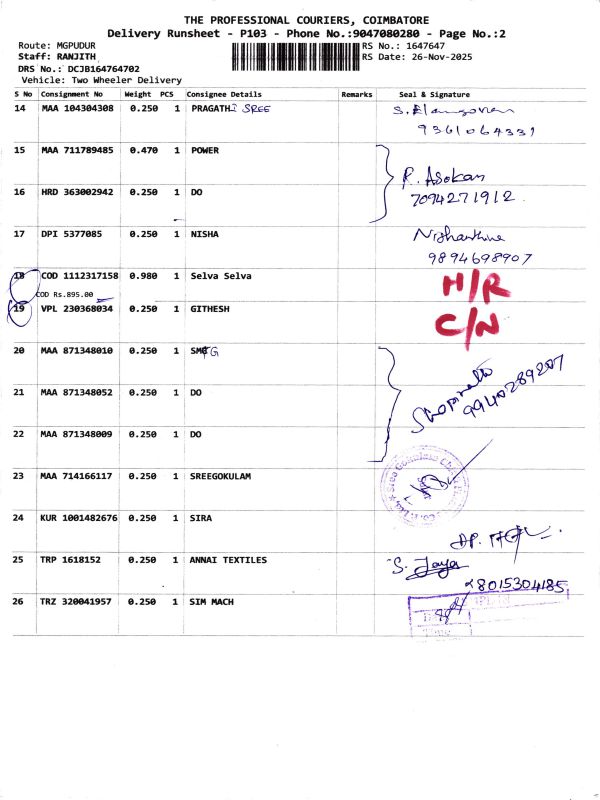 THE PROFESSIONAL COURIERS, COIMBATORE
Delivery Runsheet - P103 - Phone No.:9047080280 - Page No.:2
Route: MGPUDUR RS No.: 1647647
Staff: RANJITH RS Date: 26-Nov-2025
DRS No.: DCJB164764702
Vehicle: Two Wheeler Delivery
S No Consignment No Weight PCS Consignee Details Remarks Seal & Signature
14 MAA 104304308 0.250 1 PRAGATHI SREE
9361064331
15 MAA 711789485 0.470 1 POWER
R. Asokan
16 HRD 363002942 0.250 1 DO 7094271912
17 DPI 5377085 0.250 1 NISHA
9894698907
18 COD 1112317158 0.980 1 Selva Selva H/R
COD Rs.895.00
19 VPL 230368034 0.250 1 GITHESH C/N
20 MAA 871348010 0.250 1
9940289207
21 MAA 871348052 0.250 1 DO
22 MAA 871348009 0.250 1 DO
23 MAA 714166117 0.250 1 SREEGOKULAM
24 KUR 1001482676 0.250 1 SIRA
25 TRP 1618152 0.250 1 ANNAI TEXTILES S. Jaya
8015304185
26 TRZ 320041957 0.250 1 SIM MACH